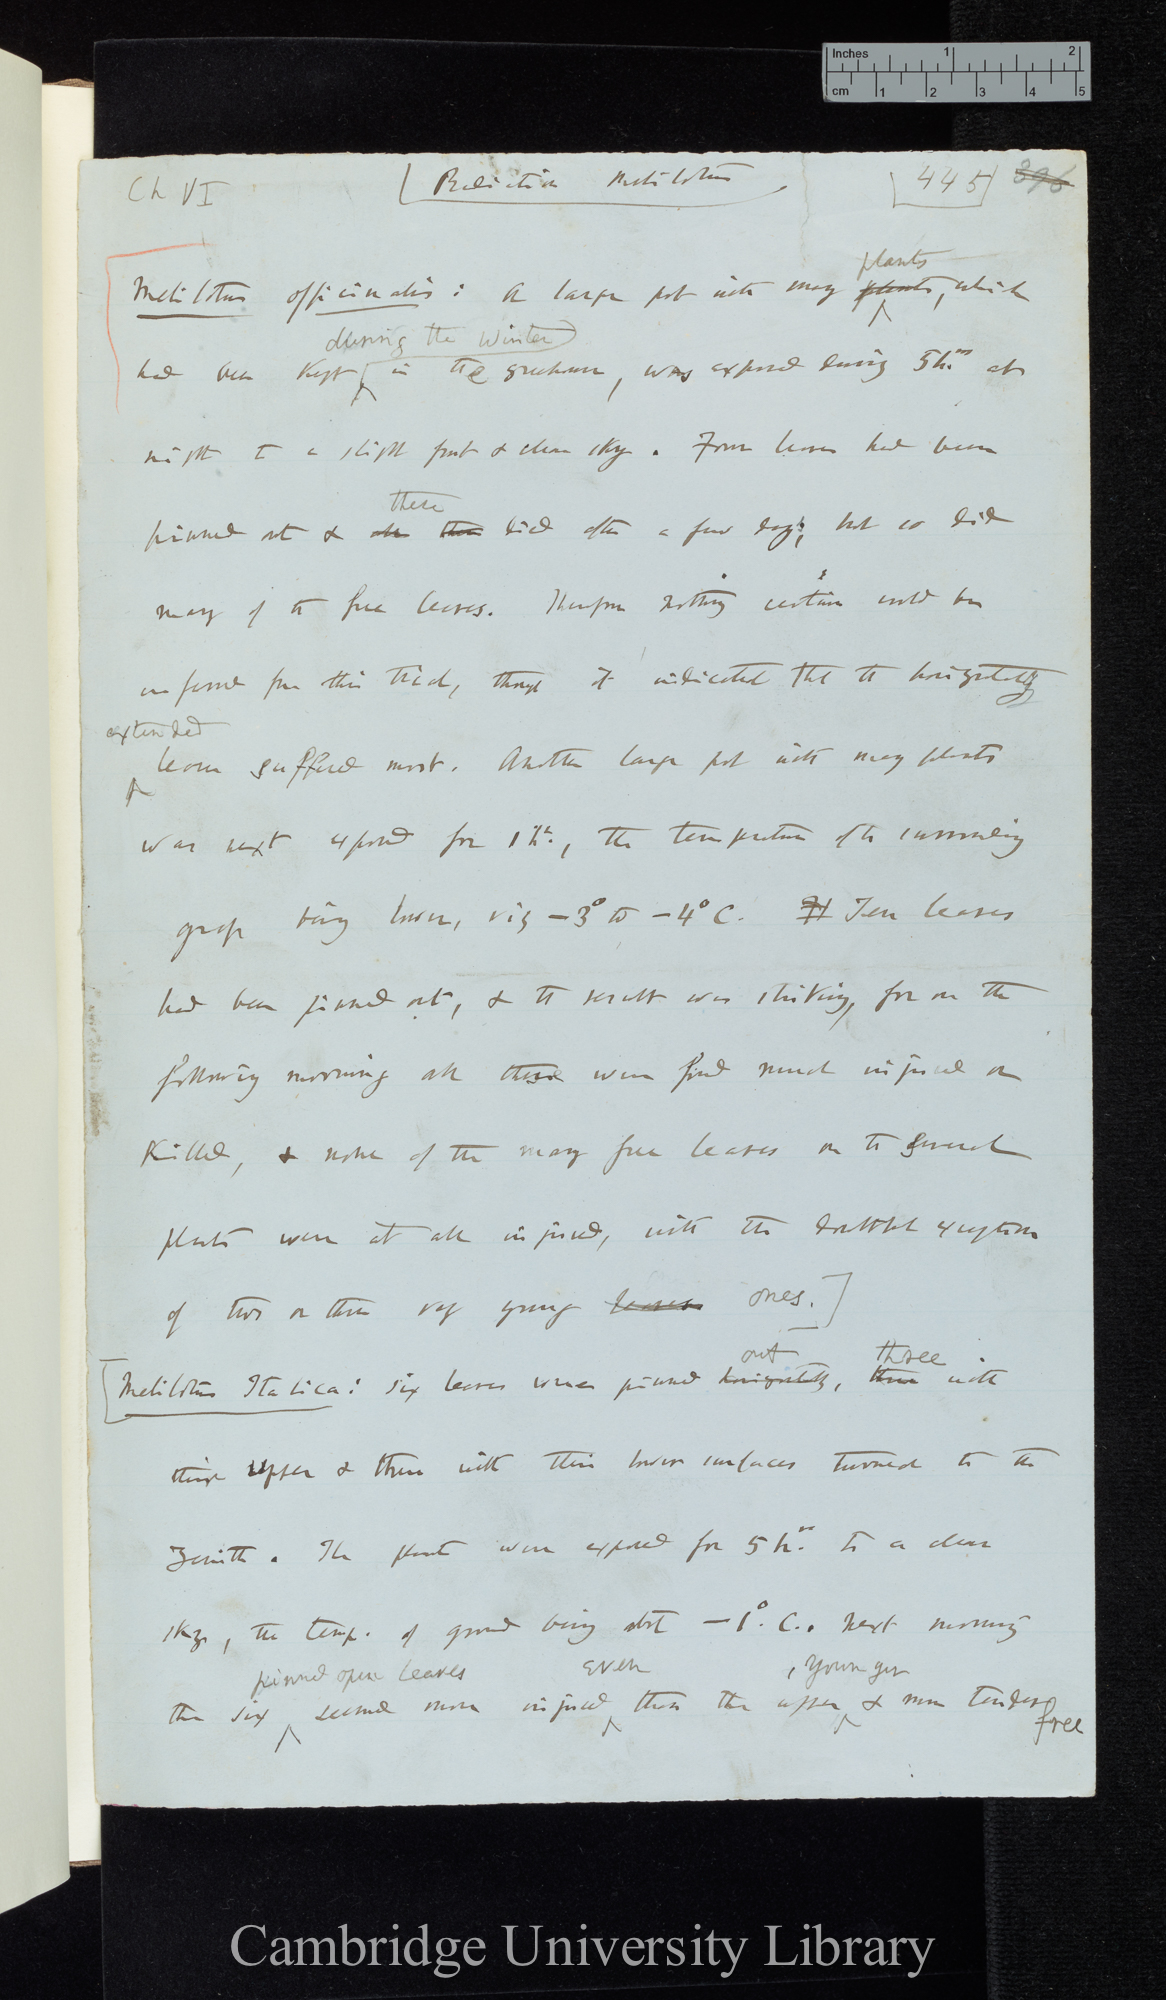 Inches 1 2
cm 1 2 3 4 5
Ch VI
Radiation Melilotus
445 396
Melilotus officinalis: A large pot with many plants plants, which
during the winter
had been kept in the greenhouse, was exposed during 5h. at
night to a slight frost & clear sky. Four leaves had been
these
pinned out & all these died after a few days, but so did
many of the free leaves. Therefore nothing certain could be
inferred from this trial, though it indicated that the horizontally
extended
leaves suffered most. Another large pot with many plants
was next exposed for 1 h., the temperature of the surrounding
being lower, viz -3° to -4° C. Ten leaves
had been pinned out, & the result was striking, for on the
following morning all these were found much injured or
killed, & none of the many free leaves on the several
plants were at all injured, with the doubtful exception
of two or three very young leaves ones.
out three
Melilotus Italica: six leaves were pinned horizontally, three with
their upper & three with their lower surfaces turned to the
Zenith. The plants were exposed for 5 h. to a clear
sky, the temp. of ground being about -1°. C.. Next morning
pinned open leaves even , younger
the six seemed more injured than the upper & more tender
free
Cambridge University Library